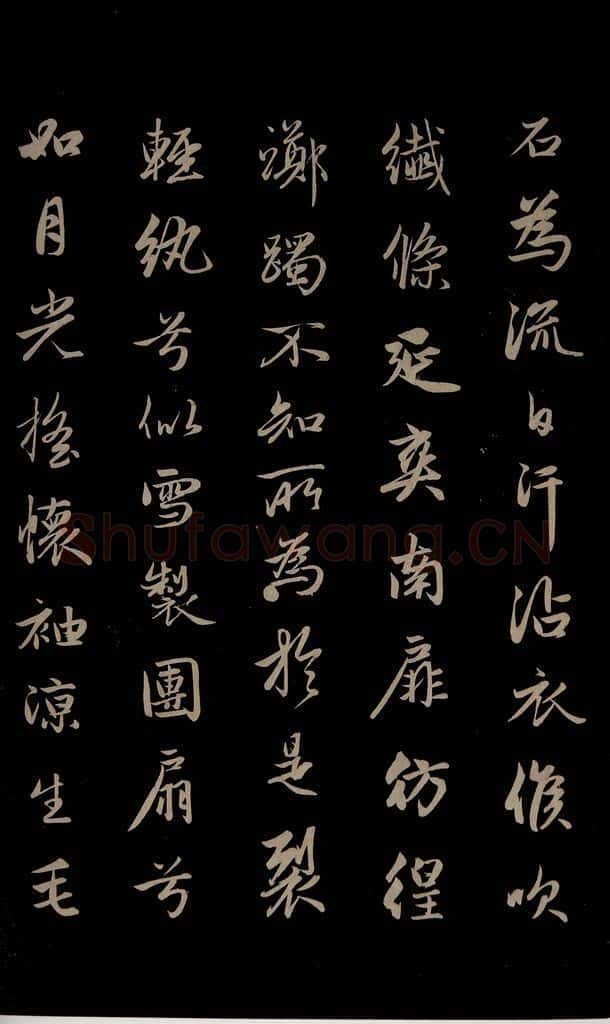 石為流白汗沾衣候吹
纖條延爽南扉彷徨
躑躅不知所為於是裂
輕紈兮似雪製團扇兮
如月光搖懷袖凉生毛
Shufawang.CN